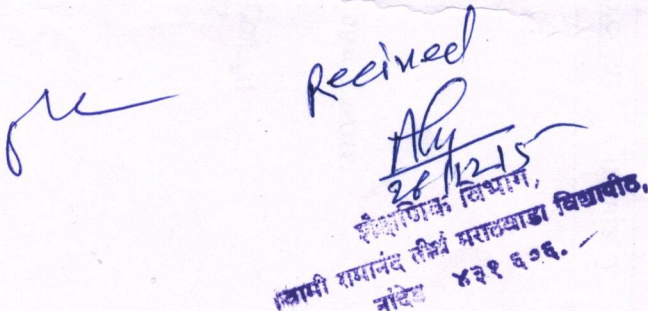 Received
28/12/15
शैक्षणिक विभाग,
स्वामी रामानंद तीर्थ मराठवाडा विद्यापीठ,
नांदेड ४३१ ६०६.